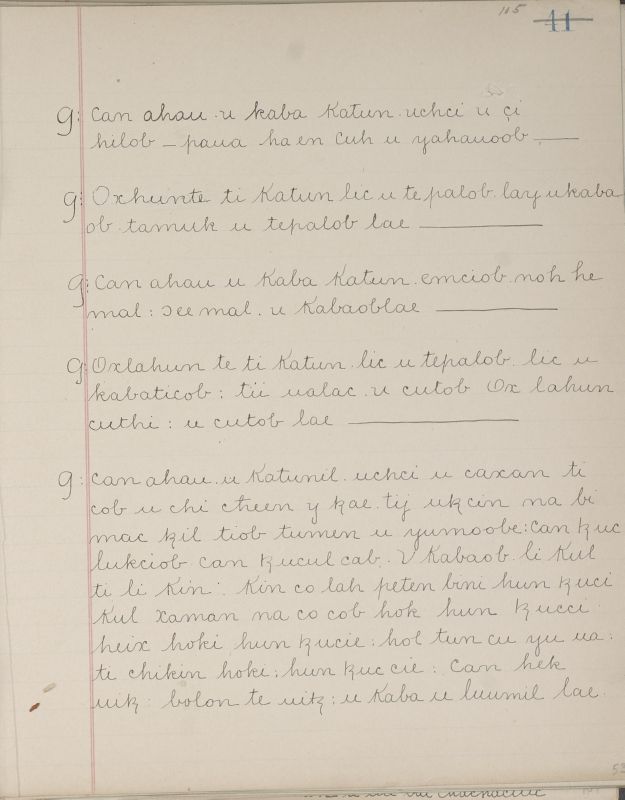 115 41
9: Can ahau · u kaba Katun · uchci u çi
hilob — paua ha en cuh u yahauoob —
9: Oxhunte ti Katun lic u te palob · lay u kaba
ob · tamuk u tepalob lae —
9: Can ahau u Kaba Katun · emciob · noh he
mal : ɔee mal · u Kabaoblae —
9: Oxlahun te ti Katun · lic u tepalob · lic u
kabaticob : tii ualac · u cutob Ox lahun
cuthi : u cutob lae —
9: Can ahau · u Katunil · uchci u caxan ti
cob u chi cheen y ꜩae · tij ukꜩin na bi
mac ꜩil tiob tumen u yumoobe : can ꜩuc
lukciob can ꜩucul cab · V Kabaob · li Kul
ti li Kin : Kin co lah peten bini hun ꜩuci
Kul xaman na co cob hok hun ꜩucci
heix hoki hun ꜩucie : hol tun cu yu ua :
ti chikin hoki : hun ꜩuc cie : Can hek
uitꜩ : bolon te uitꜩ : u Kaba u luumil lae ·
53